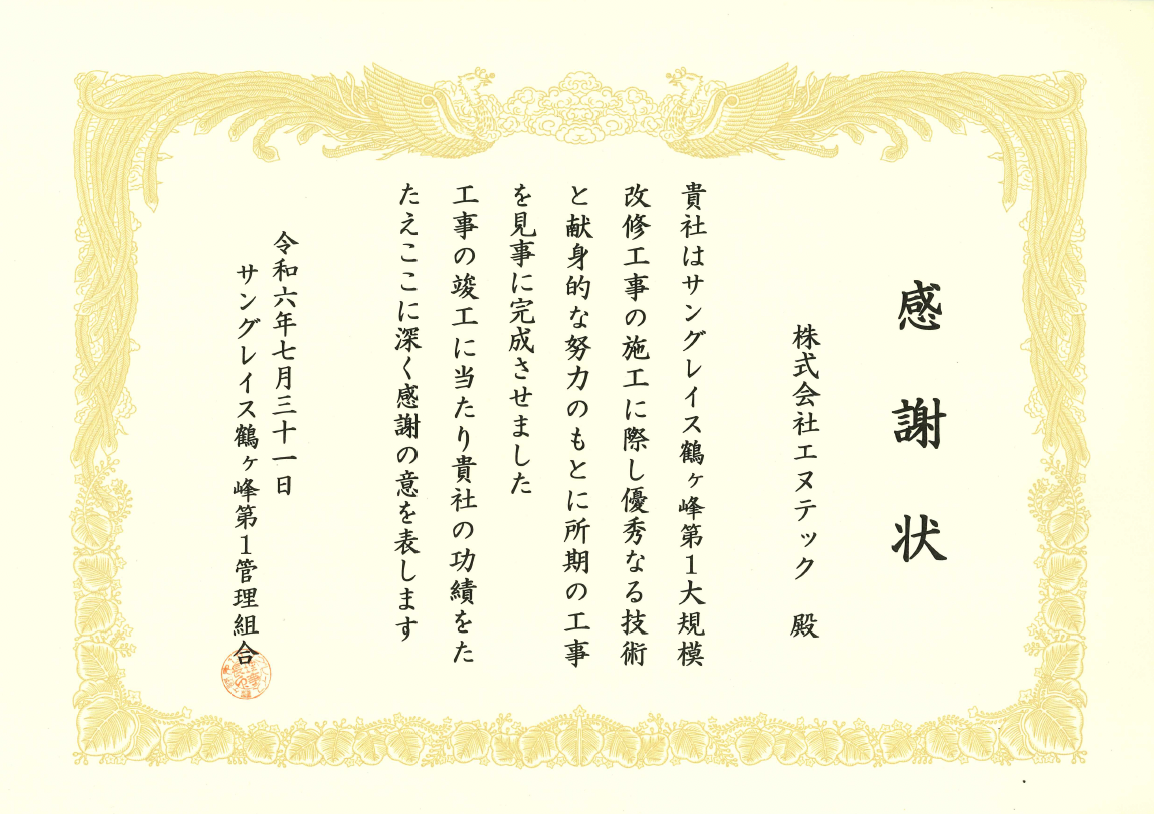 感謝状
株式会社エヌテック　殿
貴社はサングレイス鶴ヶ峰第1大規模
改修工事の施工に際し優秀なる技術
と献身的な努力のもとに所期の工事
を見事に完成させました
工事の竣工に当たり貴社の功績をた
たえここに深く感謝の意を表します
令和六年七月三十一日
サングレイス鶴ヶ峰第1管理組合